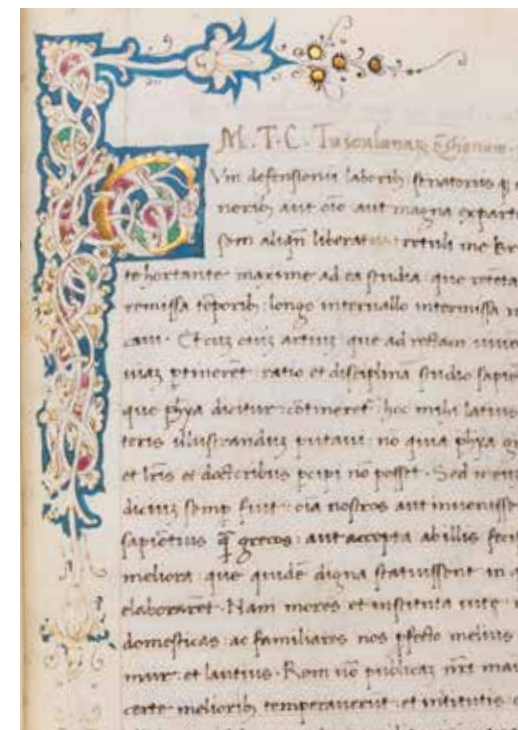 M. T. C. Tusculanaꝝ q̃stionum
Vm defensionū laborib; senatoriis q;
nerib; aut oīo aut magna ex parte
sem aliqñ liberatus retuli me bru
te hortante maxime ad ea studia que retēta
remissa tēporib; longo intervallo intermissa
caui. Et cuʒ oīuʒ artiuʒ que ad rectam viuen
uiaʒ ptinerēt ratio et disciplina studio sapiē
que phỹa dicitur cōtineret hoc mihi latinis
teris illustranduʒ putaui nō quia phỹa gr
et lr̃is et doctoribus pcipi nō posset. Sed meuʒ
diciuʒ semp fuit oīa nostros aut inuenisse
sapiētius q̃ȝ grecos aut accepta ab illis feci
meliora que quidē digna statuissent in q
elaborarēt. Nam mores et instituta uite
domesticas ac familiares nos pfecto melius
mur et lautius. Rem uō publicaʒ nr̃i mai
certe meliorib; temperauerut et intitutis